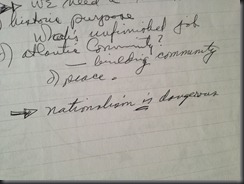 → We need a
) historic purpose
What's unfinished job
) Atlantic Community?
— building community
d) peace.
⇒ nationalism is dangerous